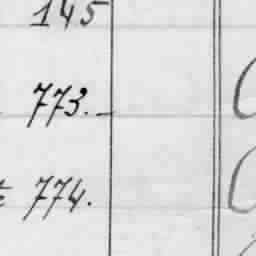 145
773.
774.